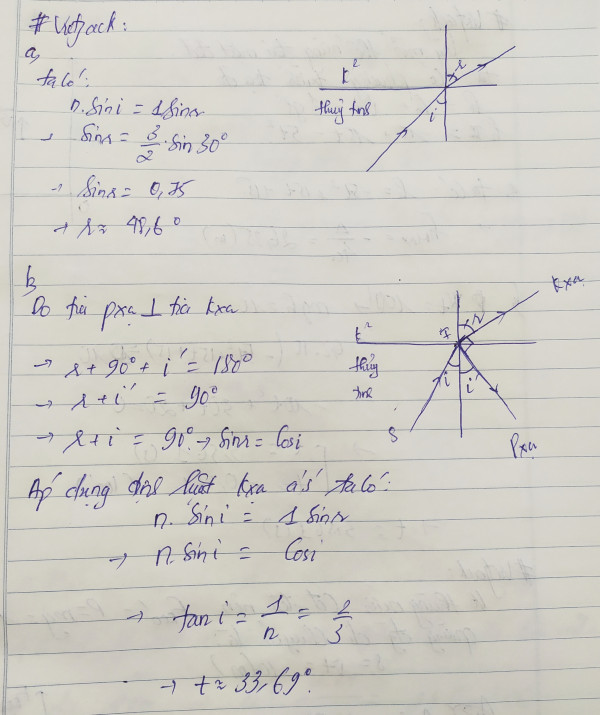 # Vietjack:
a,
ta có:
n. sin i = 1 sin r
→ sin r = 3/2 . sin 30°
→ sin r = 0,75
→ r ≈ 48,6°
k²
thuỷ tinh
r
i
b,
Do tia pxạ ⊥ tia kxạ
→ r + 90° + i' = 180°
→ r + i' = 90°
→ r + i = 90° → sin r = cos i
k²
thuỷ tinh
kxạ
I
r
i
i'
S
pxạ
Áp dụng định luật kxạ a/s' ta có:
n. sin i = 1 sin r
→ n. sin i = cos i
→ tan i = 1/n = 2/3
→ i ≈ 33,69°.